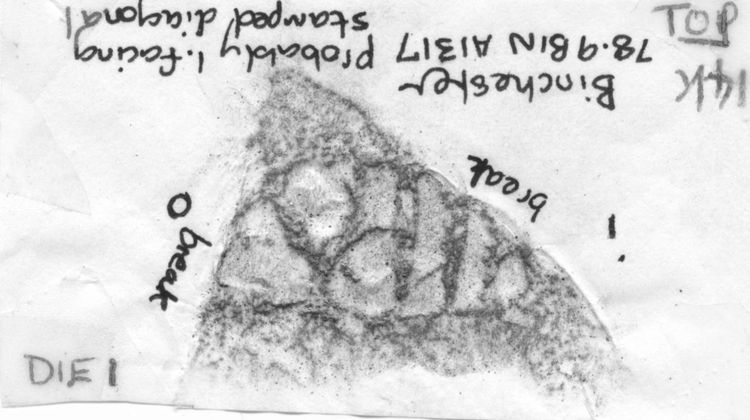 TOP
14K
Binchester
78.9 BIN A1317 probably l. facing
stamped diagonal
break
break
0
1
DIE 1